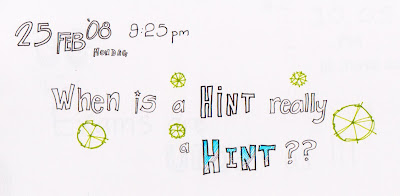 25 FEB '08 9:25pm
MONDAY
When is a HINT really
a HINT ??